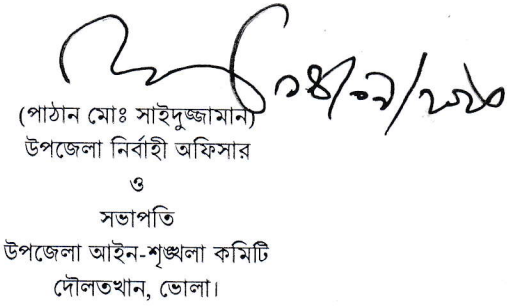 (পাঠান মোঃ সাইদুজ্জামান)
উপজেলা নির্বাহী অফিসার
ও
সভাপতি
উপজেলা আইন-শৃঙ্খলা কমিটি
দৌলতখান, ভোলা।